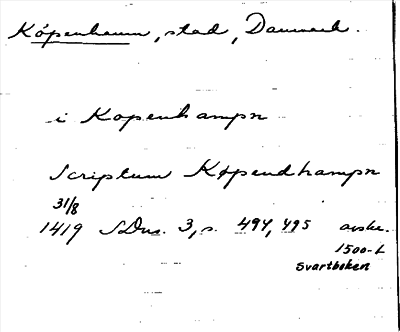 Köpenhamn, stad, Danmark.
i Kopenhampn
Scriptum Køpendhampn
31/8
1419 SDns. 3, s. 494, 495 avskr.
1500-t
Svartboken